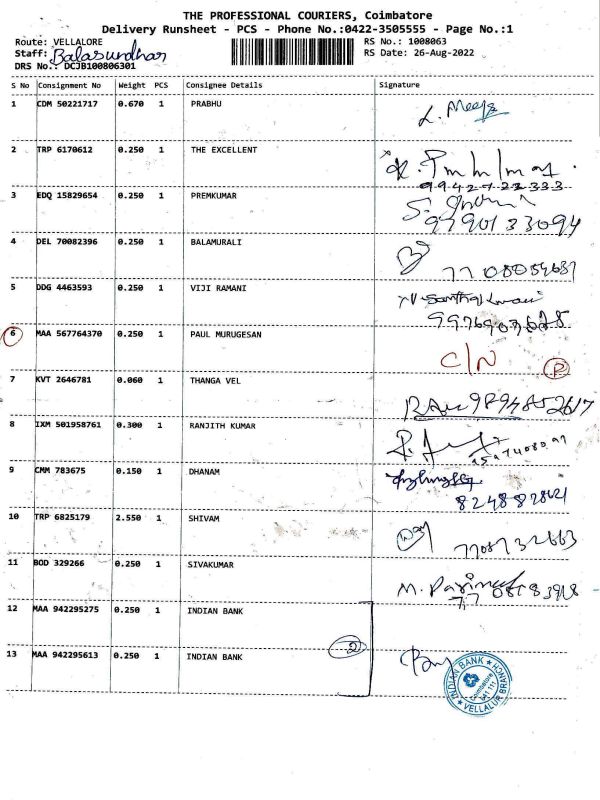 THE PROFESSIONAL COURIERS, Coimbatore
Delivery Runsheet - PCS - Phone No.:0422-3505555 - Page No.:1
Route: VELLALORE RS No.: 1008063
Staff: Balasundhar RS Date: 26-Aug-2022
DRS No.: DCJB100806301
S No Consignment No Weight PCS Consignee Details Signature
1 CDM 50221717 0.670 1 PRABHU
2 TRP 6170612 0.250 1 THE EXCELLENT
3 EDQ 15829654 0.250 1 PREMKUMAR
9790133094
4 DEL 70082396 0.250 1 BALAMURALI
5 DDG 4463593 0.250 1 VIJI RAMANI
6 MAA 567764370 0.250 1 PAUL MURUGESAN C/N
7 KVT 2646781 0.060 1 THANGA VEL
8 IXM 501958761 0.300 1 RANJITH KUMAR
9 CMM 783675 0.150 1 DHANAM
10 TRP 6825179 2.550 1 SHIVAM
7708732663
11 BOD 329266 0.250 1 SIVAKUMAR
12 MAA 942295275 0.250 1 INDIAN BANK
2
13 MAA 942295613 0.250 1 INDIAN BANK
INDIAN BANK
VELLALUR BRANCH